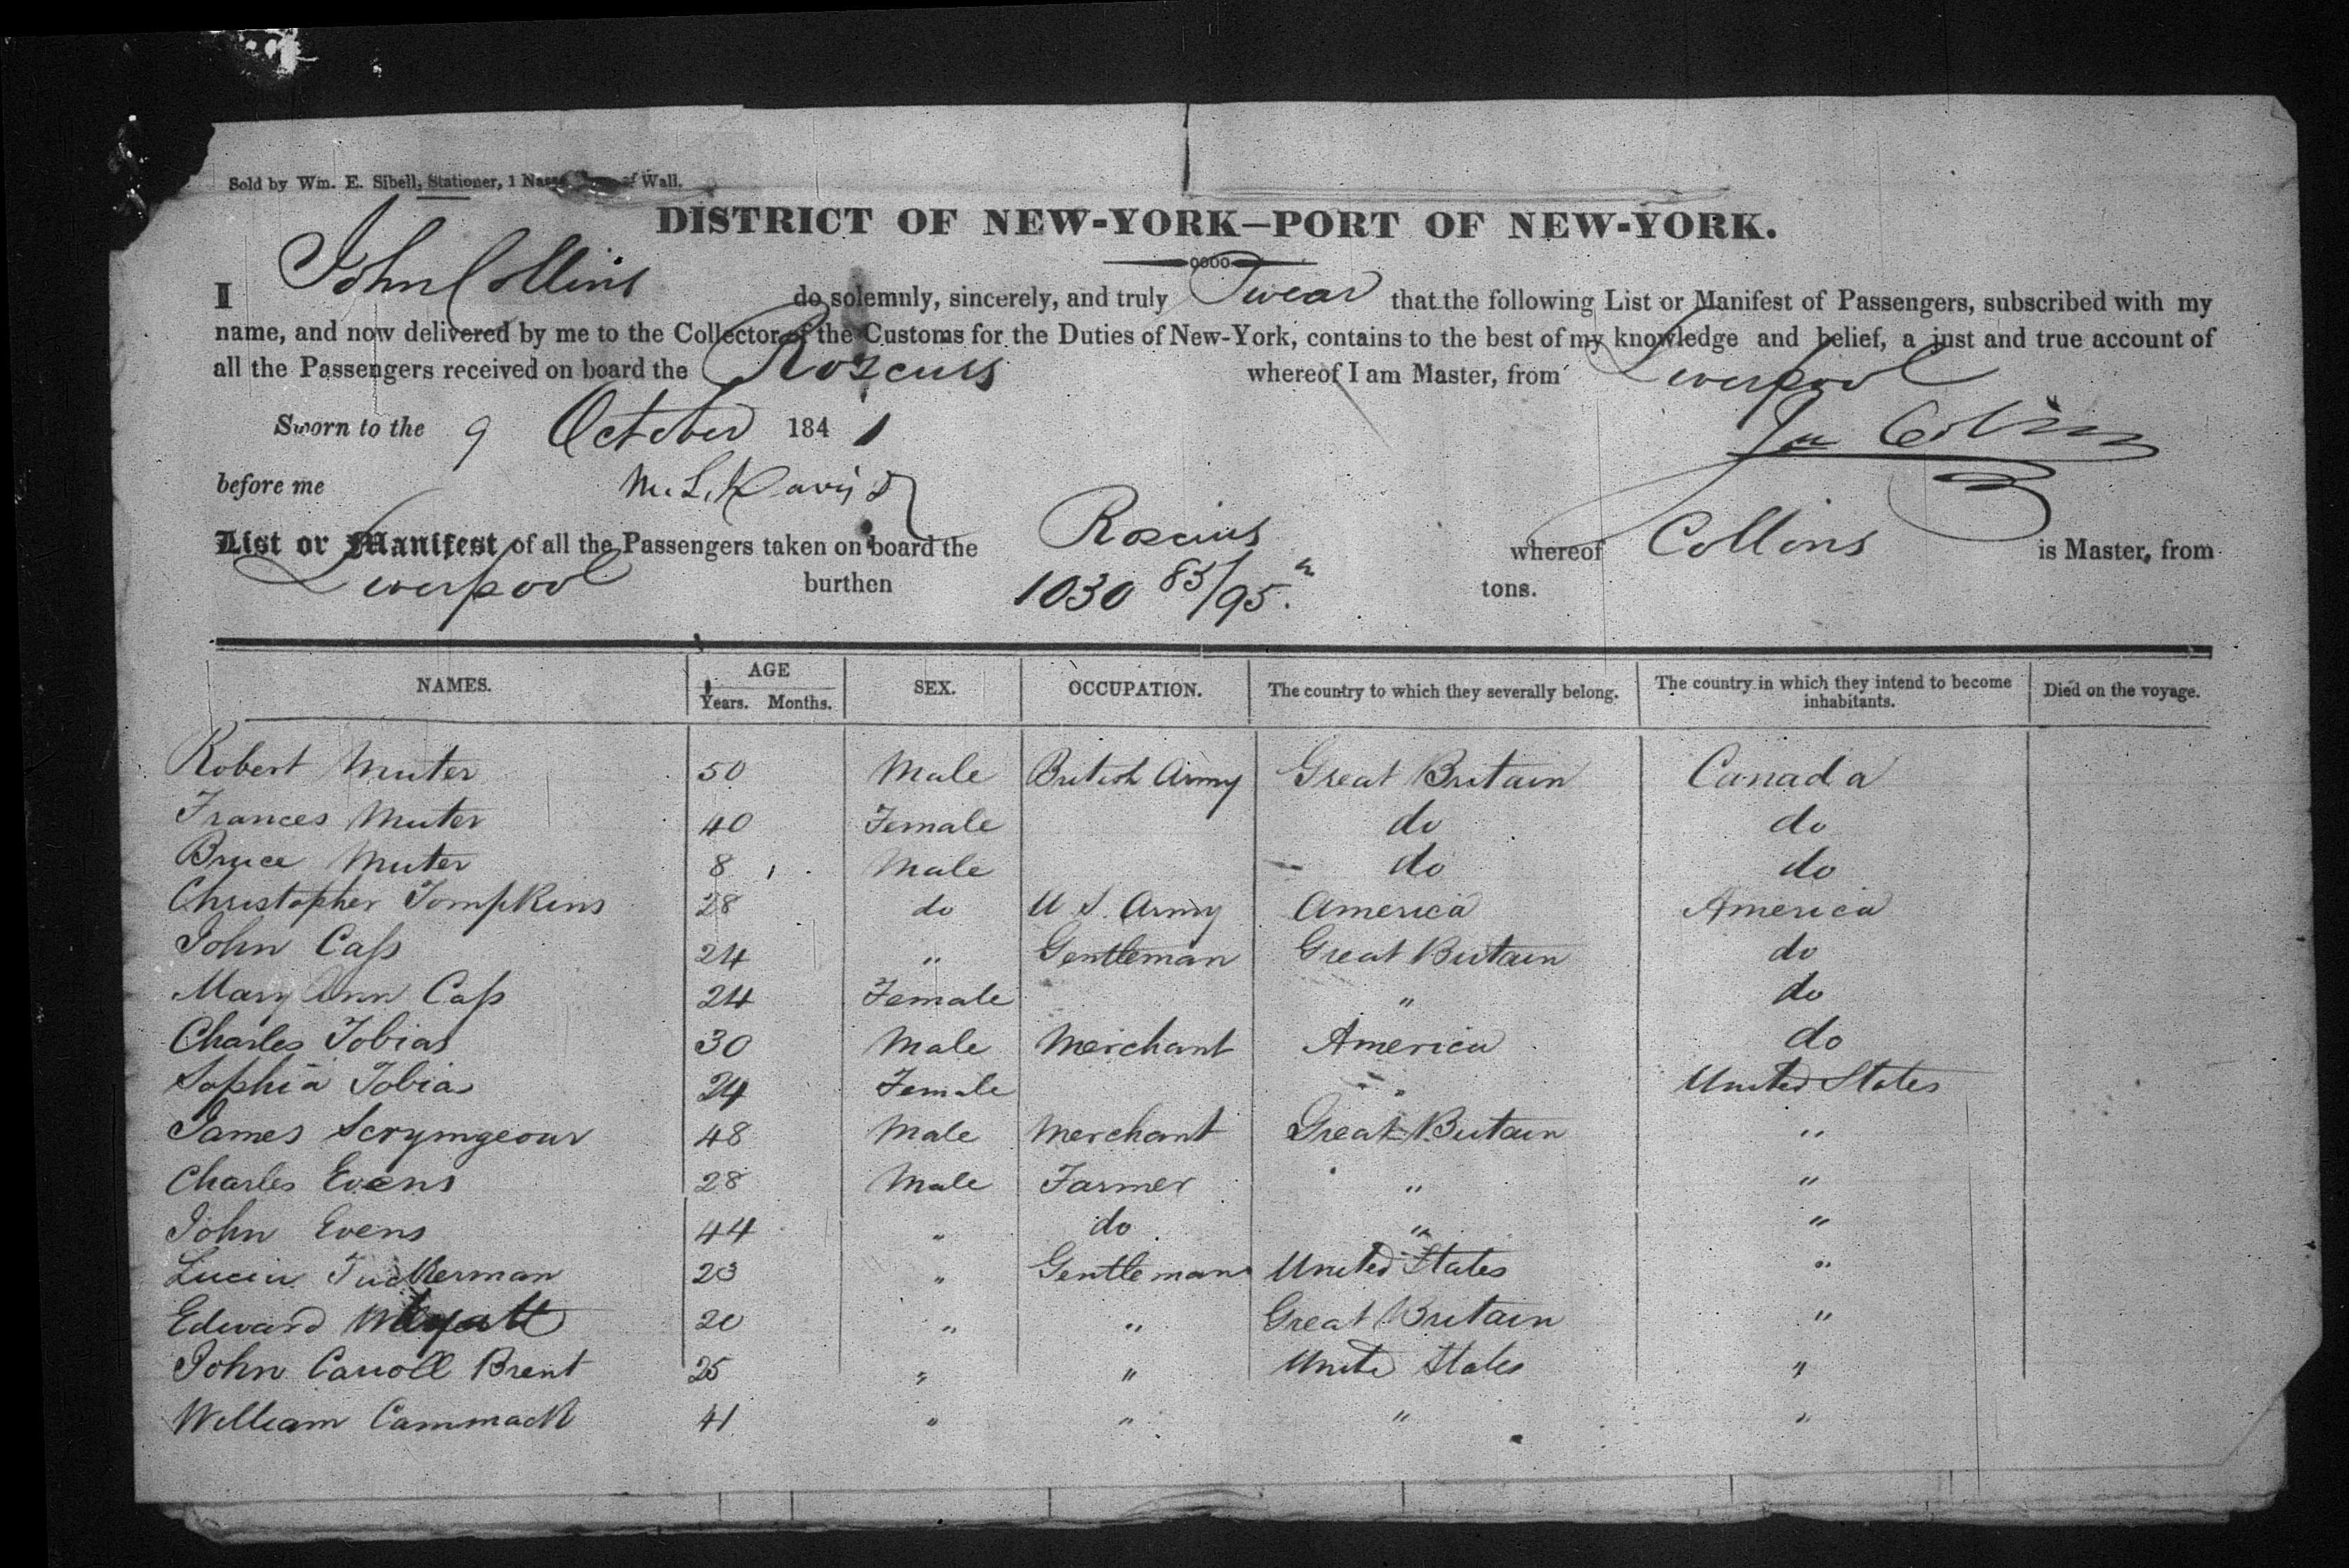 Sold by Wm. E. Sibell, Stationer, 1 Nassau of Wall.
DISTRICT OF NEW-YORK—PORT OF NEW-YORK.
I John Collins do solemnly, sincerely, and truly Swear that the following List or Manifest of Passengers, subscribed with my
name, and now delivered by me to the Collector of the Customs for the Duties of New-York, contains to the best of my knowledge and belief, a just and true account of
all the Passengers received on board the Roscius whereof I am Master, from Liverpool
Sworn to the 9 October 1841 Jn Collins
before me M. L. Davis
List or Manifest of all the Passengers taken on board the Roscius whereof Collins is Master, from
Liverpool burthen 1030 85/95 tons.
NAMES. AGE Years. Months. SEX. OCCUPATION. The country to which they severally belong. The country in which they intend to become inhabitants. Died on the voyage.
Robert Muter 50 Male British Army Great Britain Canada
Frances Muter 40 Female do do
Bruce Muter 8 Male do do
Christopher Tompkins 28 do U S. Army America America
John Caſs 24 " Gentleman Great Britain do
Mary Ann Caſs 24 Female " do
Charles Tobias 30 Male Merchant America do
Sophia Tobias 24 Female " United States
James Scrymgeour 48 Male Merchant Great Britain "
Charles Evens 28 Male Farmer " "
John Evens 44 " do " "
Lucius Tuckerman 23 " Gentleman United States "
Edward 20 " " Great Britain "
John Carroll Brent 25 " " Unite States "
William Cammack 41 " " " "